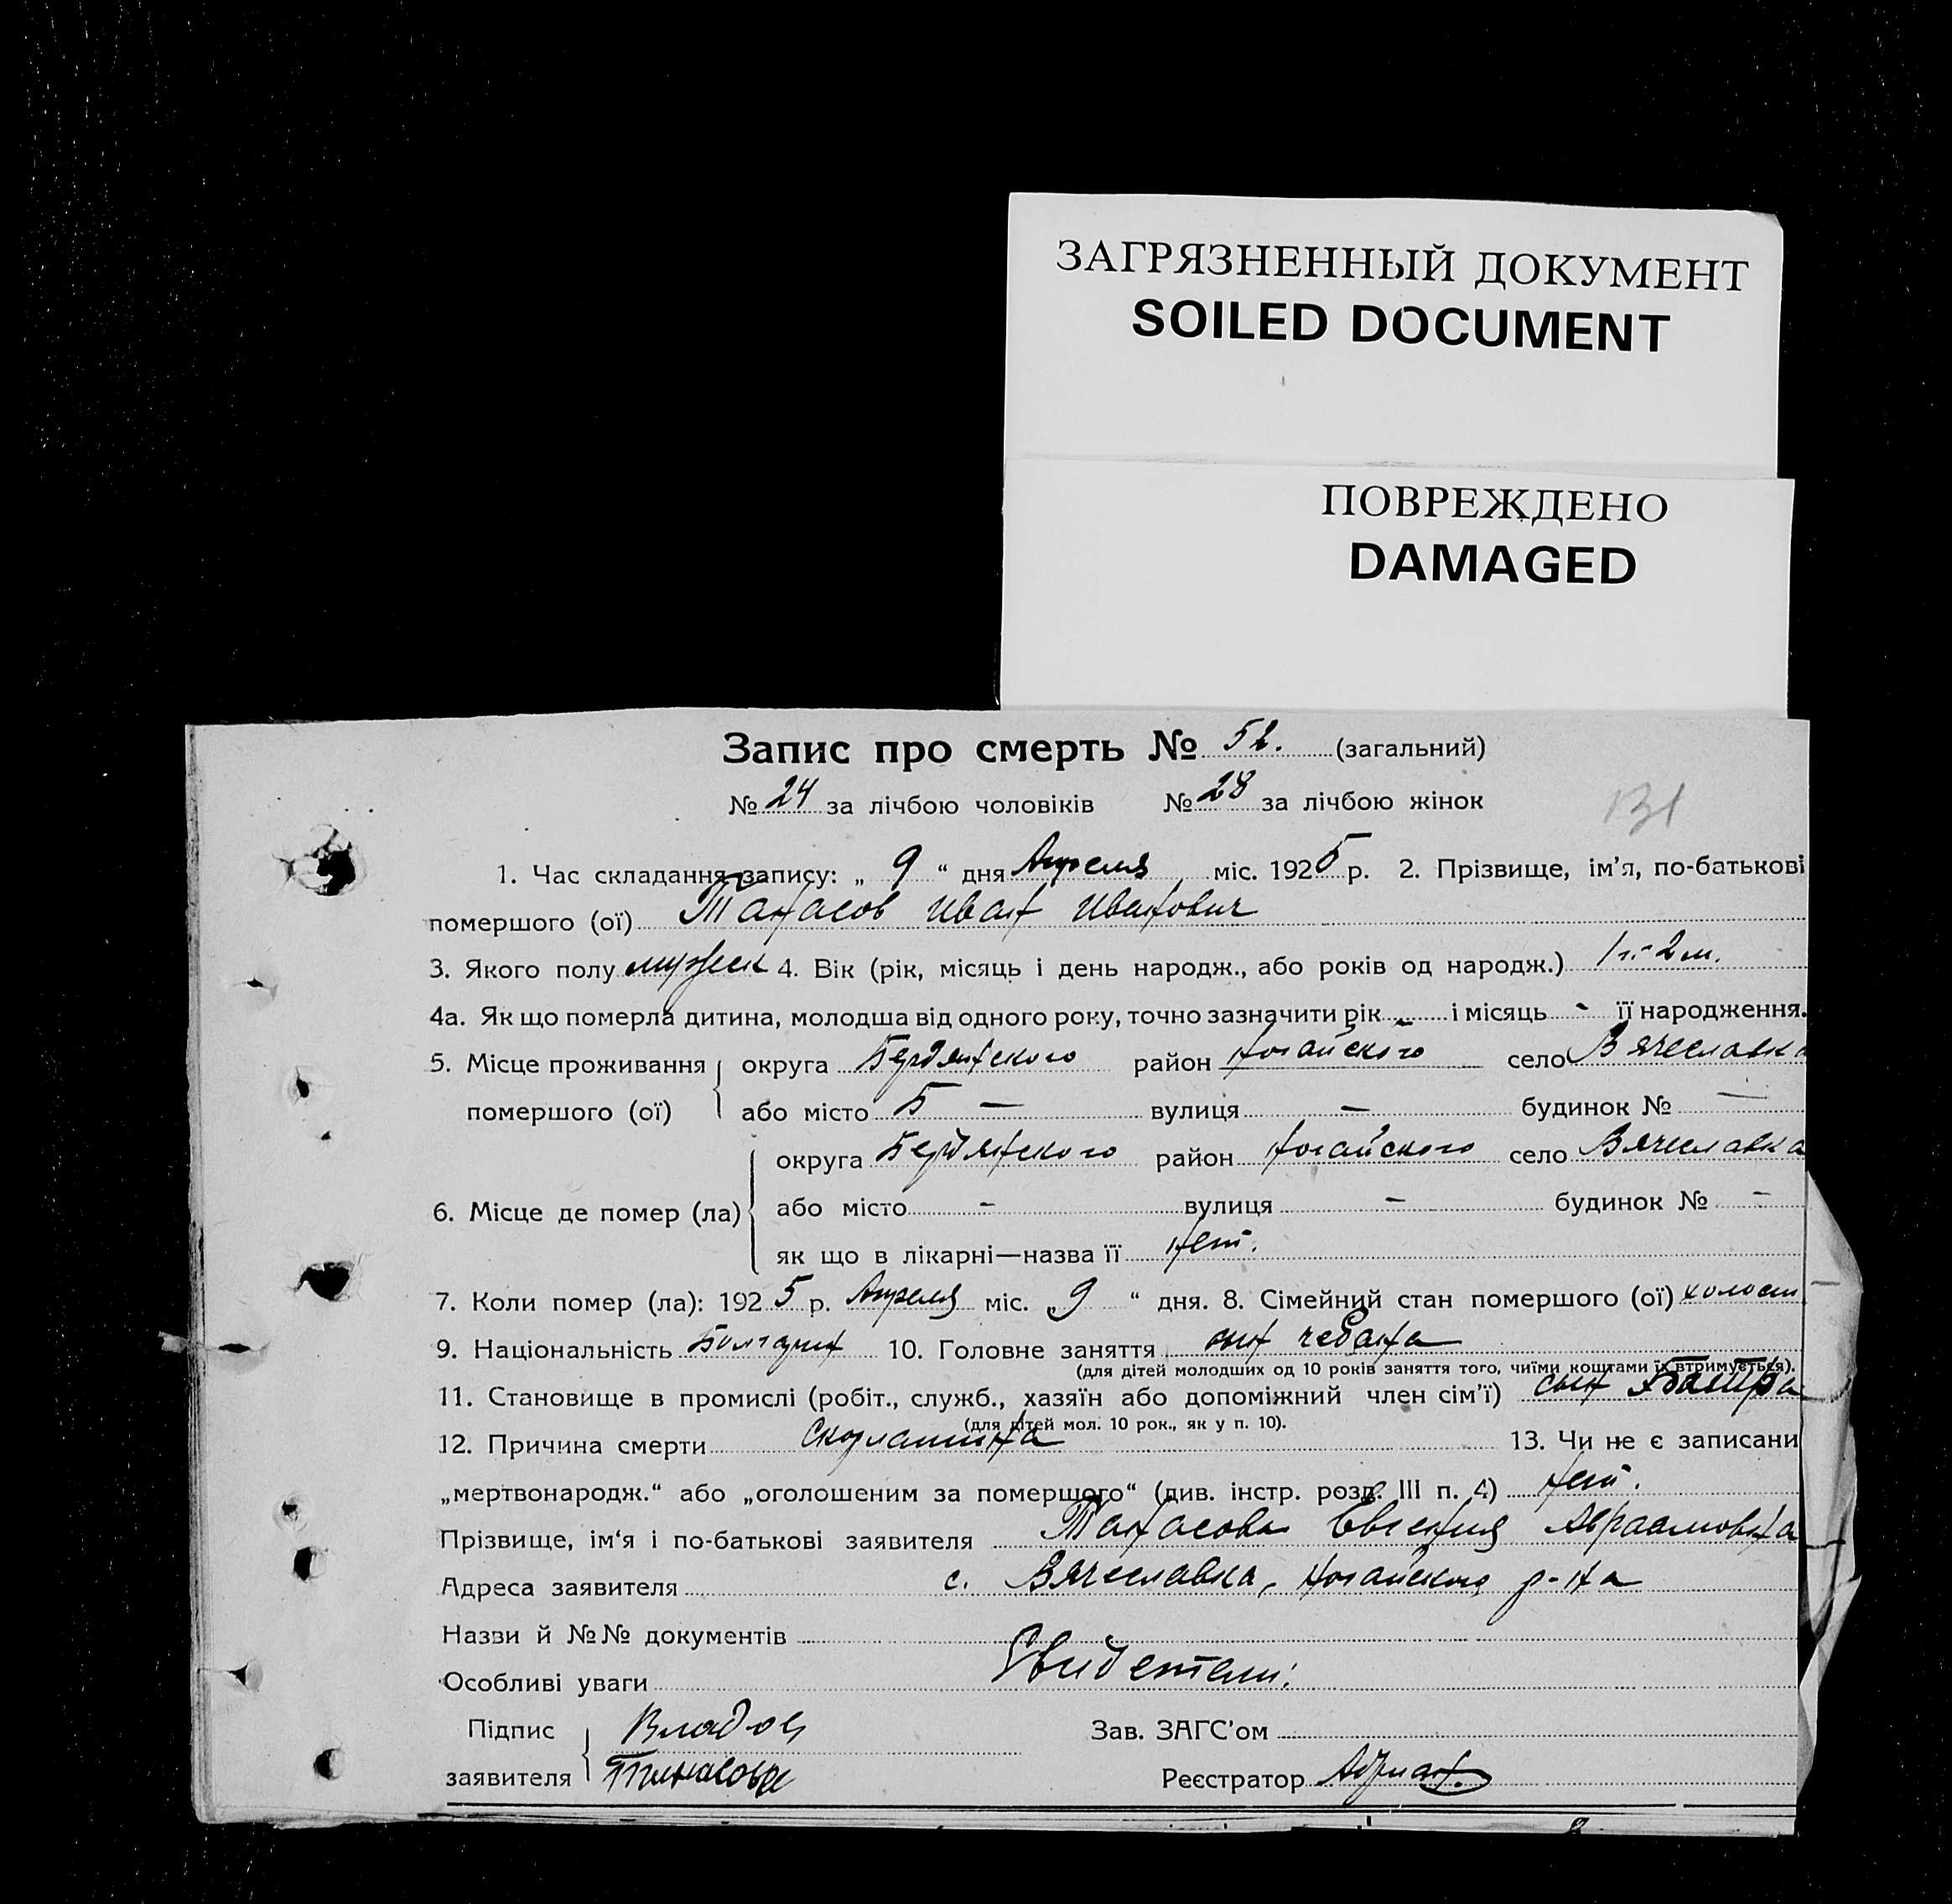 ЗАГРЯЗНЕННЫЙ ДОКУМЕНТ
SOILED DOCUMENT
ПОВРЕЖДЕНО
DAMAGED
Запис про смерть № 52. (загальний)
№ 24 за лічбою чоловіків № 28 за лічбою жінок
131
1. Час складання запису: „ 9 “ дня Апреля міс. 1925 р. 2. Прізвище, ім’я, по-батькові
помершого (ої) Танасов Иван Иванович
3. Якого полу мужеск 4. Вік (рік, місяць і день народж., або років од народж.) 1 г. - 2 м.
4а. Як що померла дитина, молодша від одного року, точно зазначити рік - і місяць - її народження.
5. Місце проживання округа Бердянского район Ногайского село Вячеславка
помершого (ої) або місто Б — вулиця — будинок № —
округа Бердянского район Ногайского село Вячеславка
6. Місце де помер (ла) або місто - вулиця - будинок № -
як що в лікарні—назва її нет.
7. Коли помер (ла): 1925 р. Апреля міс. „ 9 “ дня. 8. Сімейний стан помершого (ої) холост
9. Національність Болгарин 10. Головне заняття сын чебана
(для дітей молодших од 10 років заняття того, чиїми коштами їх втримується).
11. Становище в промислі (робіт., служб., хазяїн або допоміжний член сім’ї) сын
(для дітей мол. 10 рок., як у п. 10).
12. Причина смерти Скарлатина 13. Чи не є записани
„мертвонародж.“ або „оголошеним за померщого“ (див. інстр. розд. III п. 4) нет.
Прізвище, ім‘я і по-батькові заявителя Танасова Евгения Авраамовна
Адреса заявителя с. Вячеславка, Ногайского р-на
Назви й №№ документів
Особливі уваги Свидетели:
Підпис Владов Зав. ЗАГС’ом
заявителя Реєстратор